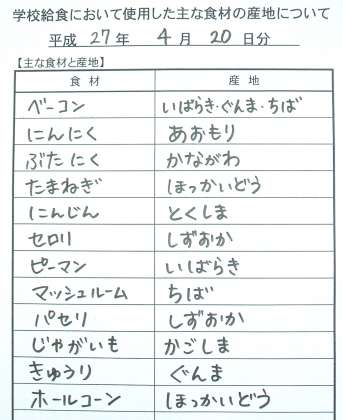 学校給食において使用した主な食材の産地について
平成 27 年 4 月 20 日分
【主な食材と産地】
食材 産地
ベーコン いばらき・ぐんま・ちば
にんにく あおもり
ぶたにく かながわ
たまねぎ ほっかいどう
にんじん とくしま
セロリ しずおか
ピーマン いばらき
マッシュルーム ちば
パセリ しずおか
じゃがいも かごしま
きゅうり ぐんま
ホールコーン ほっかいどう